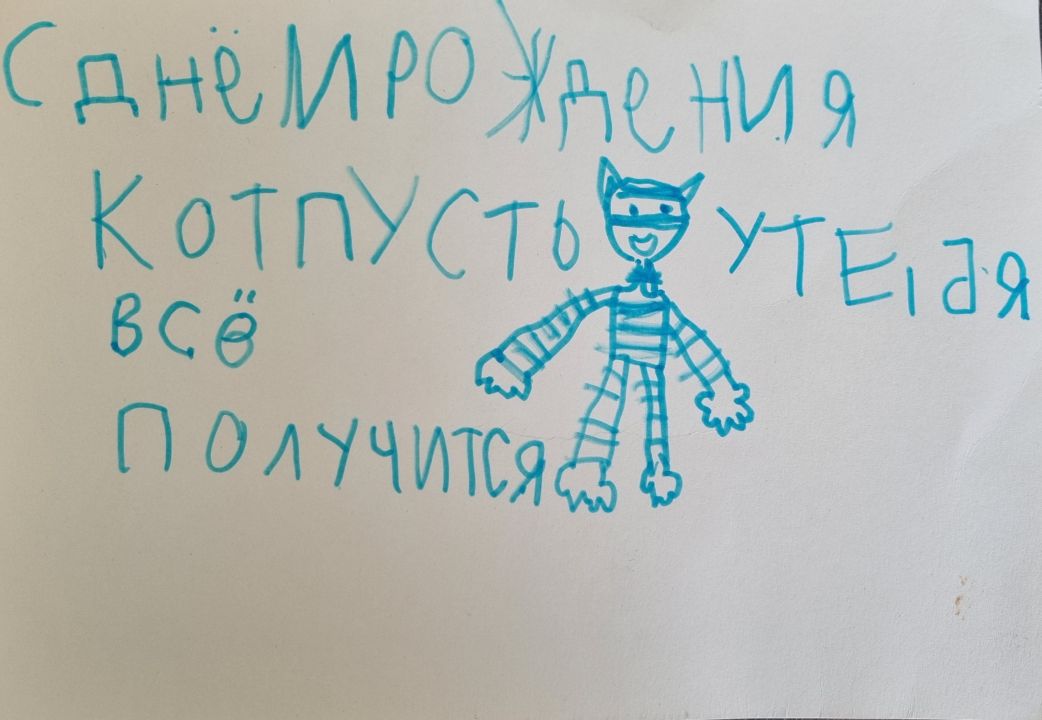 С ДНЁМ РОЖДЕНИЯ
КОТ ПУСТЬ У ТЕБЯ
ВСЁ
ПОЛУЧИТСЯ